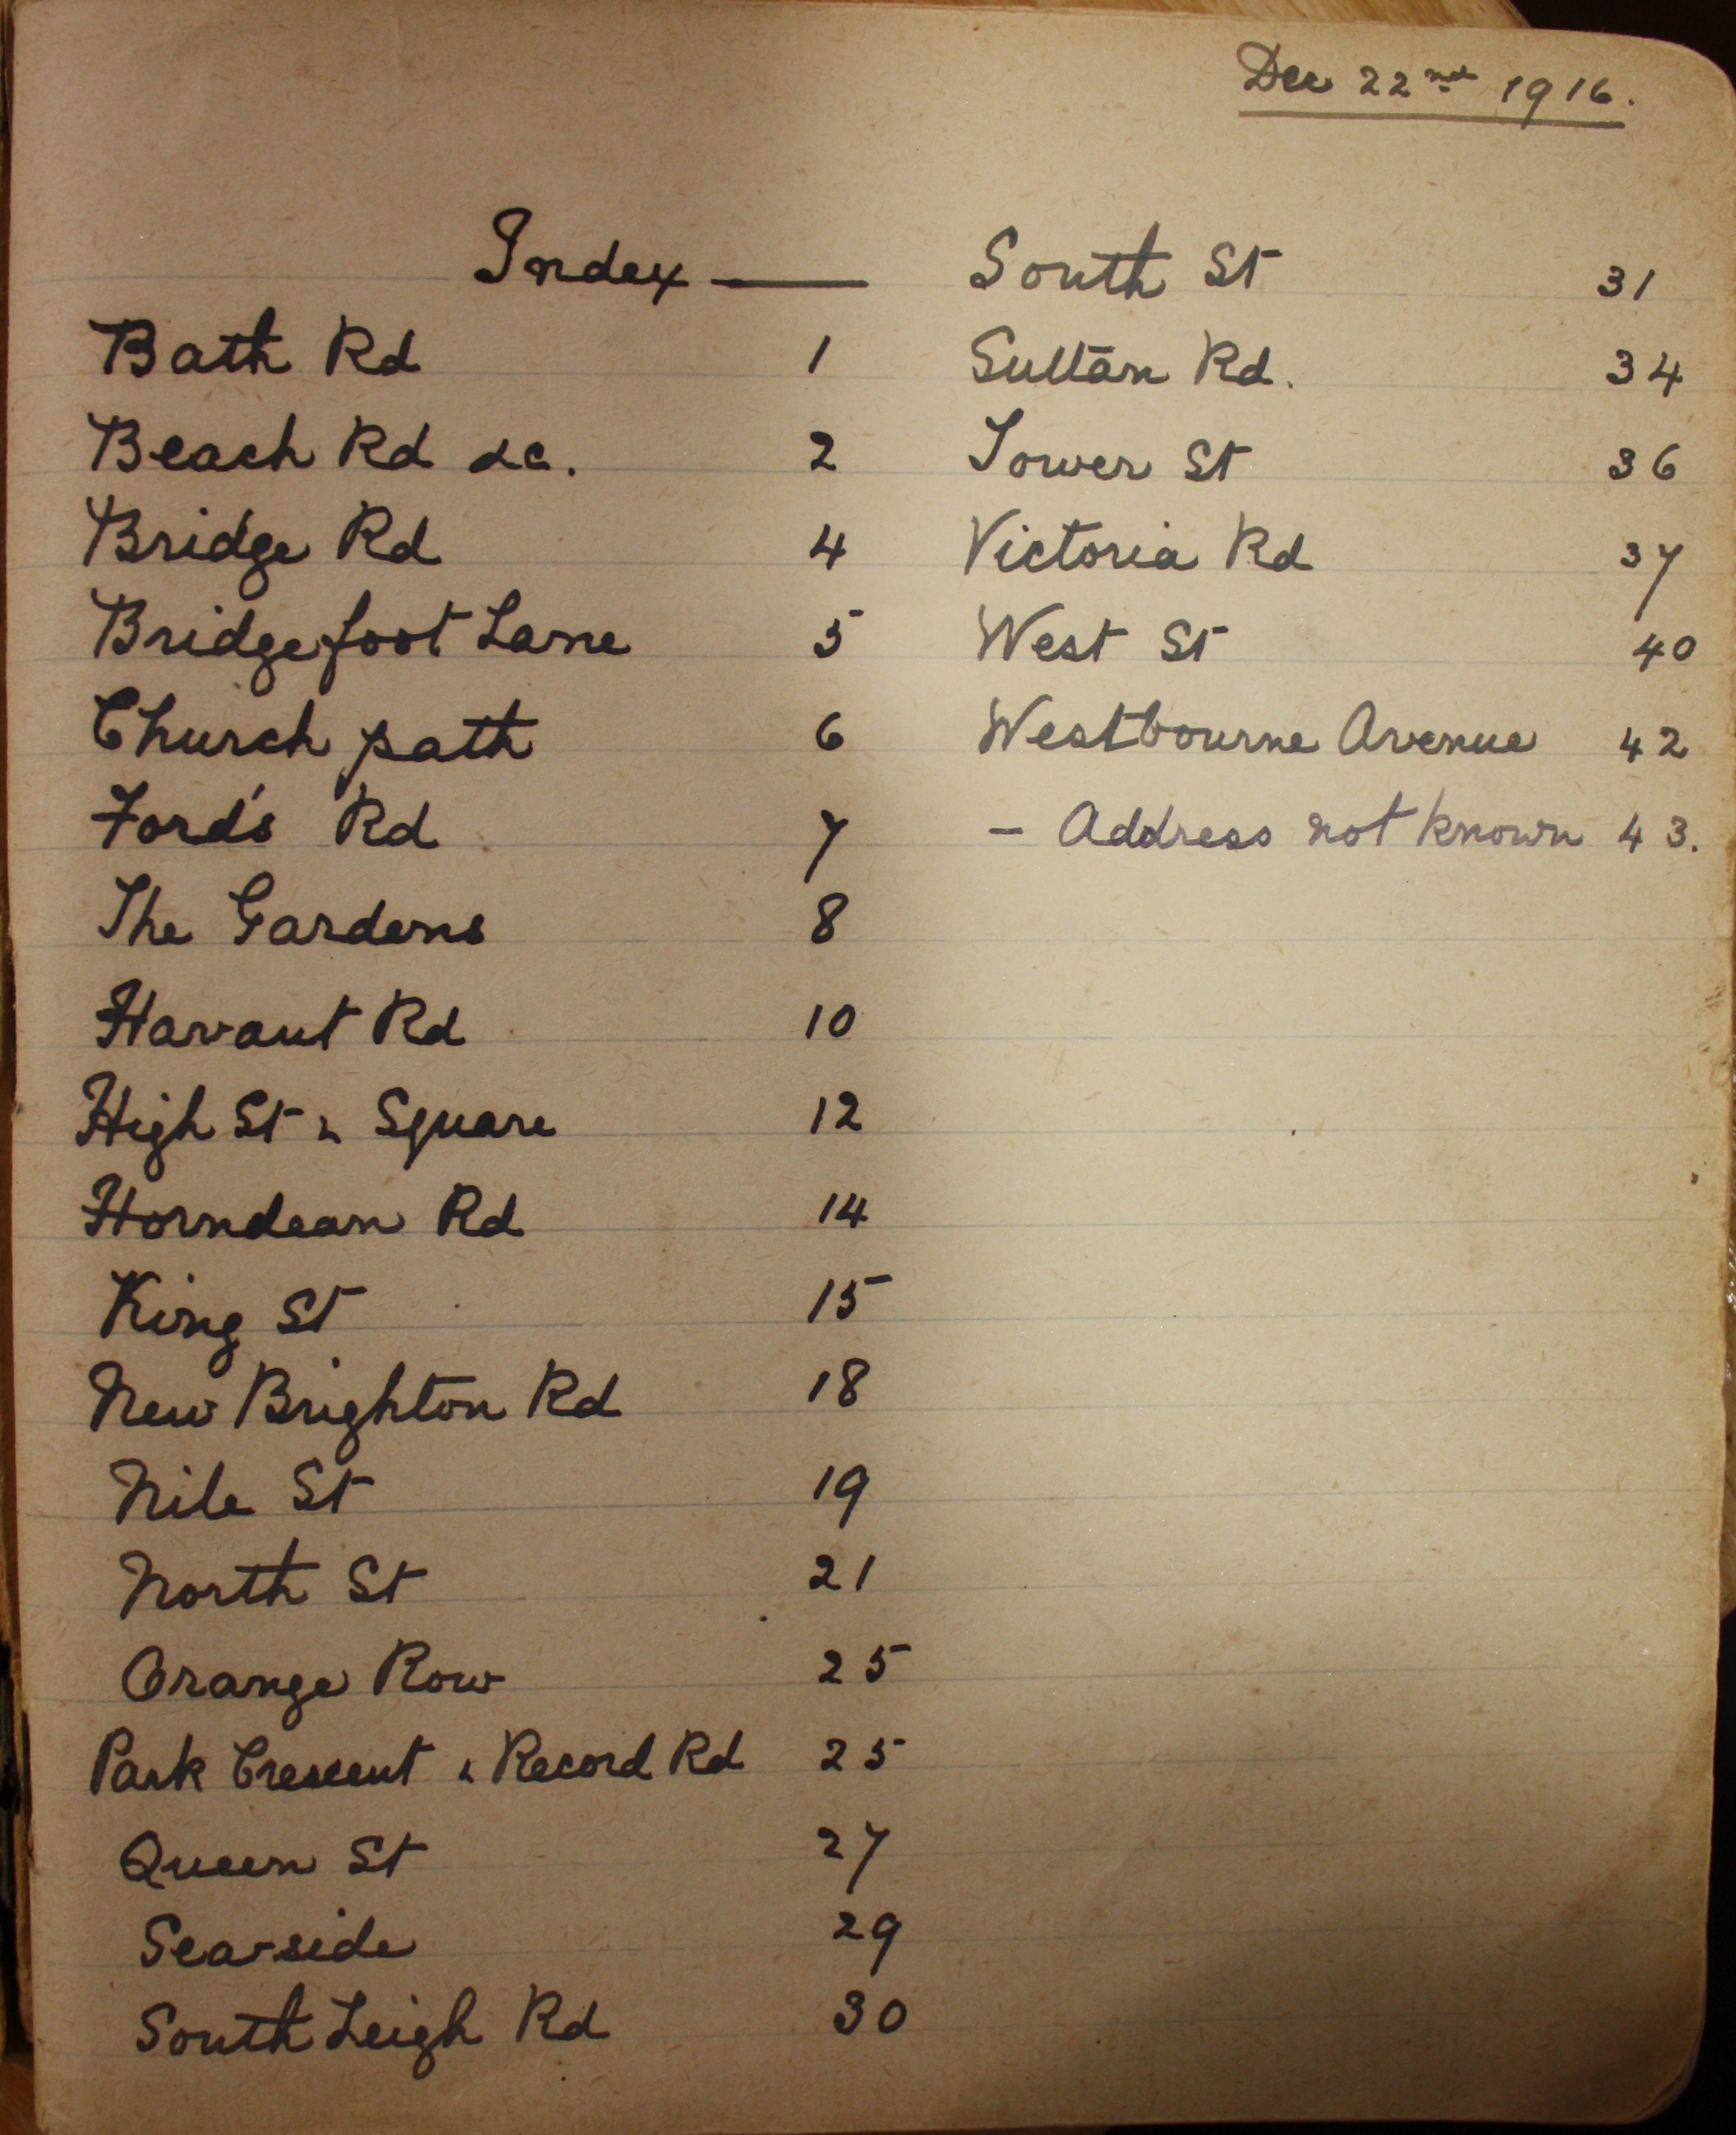 Dec 22nd 1916.
Index —
Bath Rd 1
Beach Rd &c. 2
Bridge Rd 4
Bridgefoot Lane 5
Church path 6
Ford's Rd 7
The Gardens 8
Havant Rd 10
High St & Square 12
Horndean Rd 14
King St 15
New Brighton Rd 18
Nile St 19
North St 21
Orange Row 25
Park Crescent & Record Rd 25
Queen St 27
Sea-side 29
South Leigh Rd 30
South St 31
Sultan Rd. 34
Tower St 36
Victoria Rd 37
West St 40
Westbourne Avenue 42
- Address not known 43.